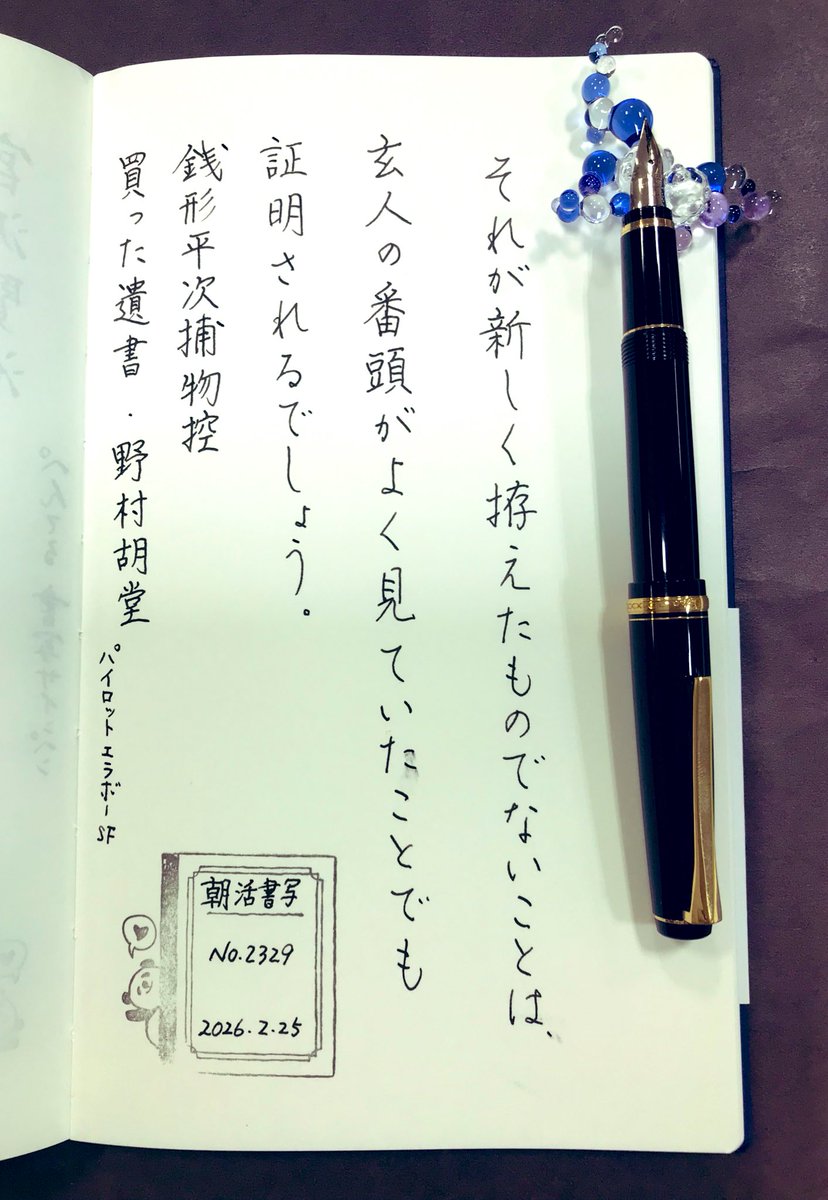 それが新しく拵えたものでないことは、
玄人の番頭がよく見ていたことでも
証明されるでしょう。
銭形平次捕物控
買った遺書・野村胡堂
パイロット エラボー SF
朝活書写
No.2329
2026.2.25